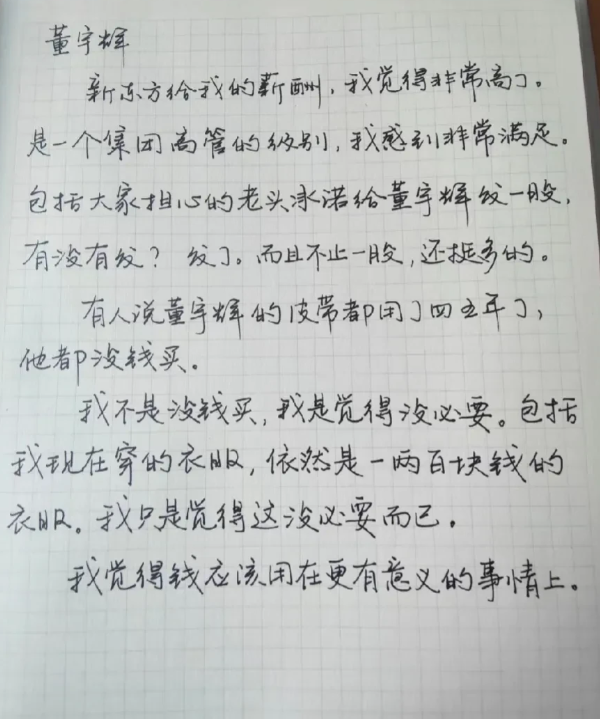 董宇辉
新东方给我的薪酬，我觉得非常高了。
是一个集团高管的级别，我感到非常满足。
包括大家担心的老头承诺给董宇辉发一股，
有没有发？发了。而且不止一股，还挺多的。
有人说董宇辉的皮带都用了四五年了，
他都没钱买。
我不是没钱买，我是觉得没必要。包括
我现在穿的衣服，依然是一两百块钱的
衣服。我只是觉得这没必要而已。
我觉得钱应该用在更有意义的事情上。